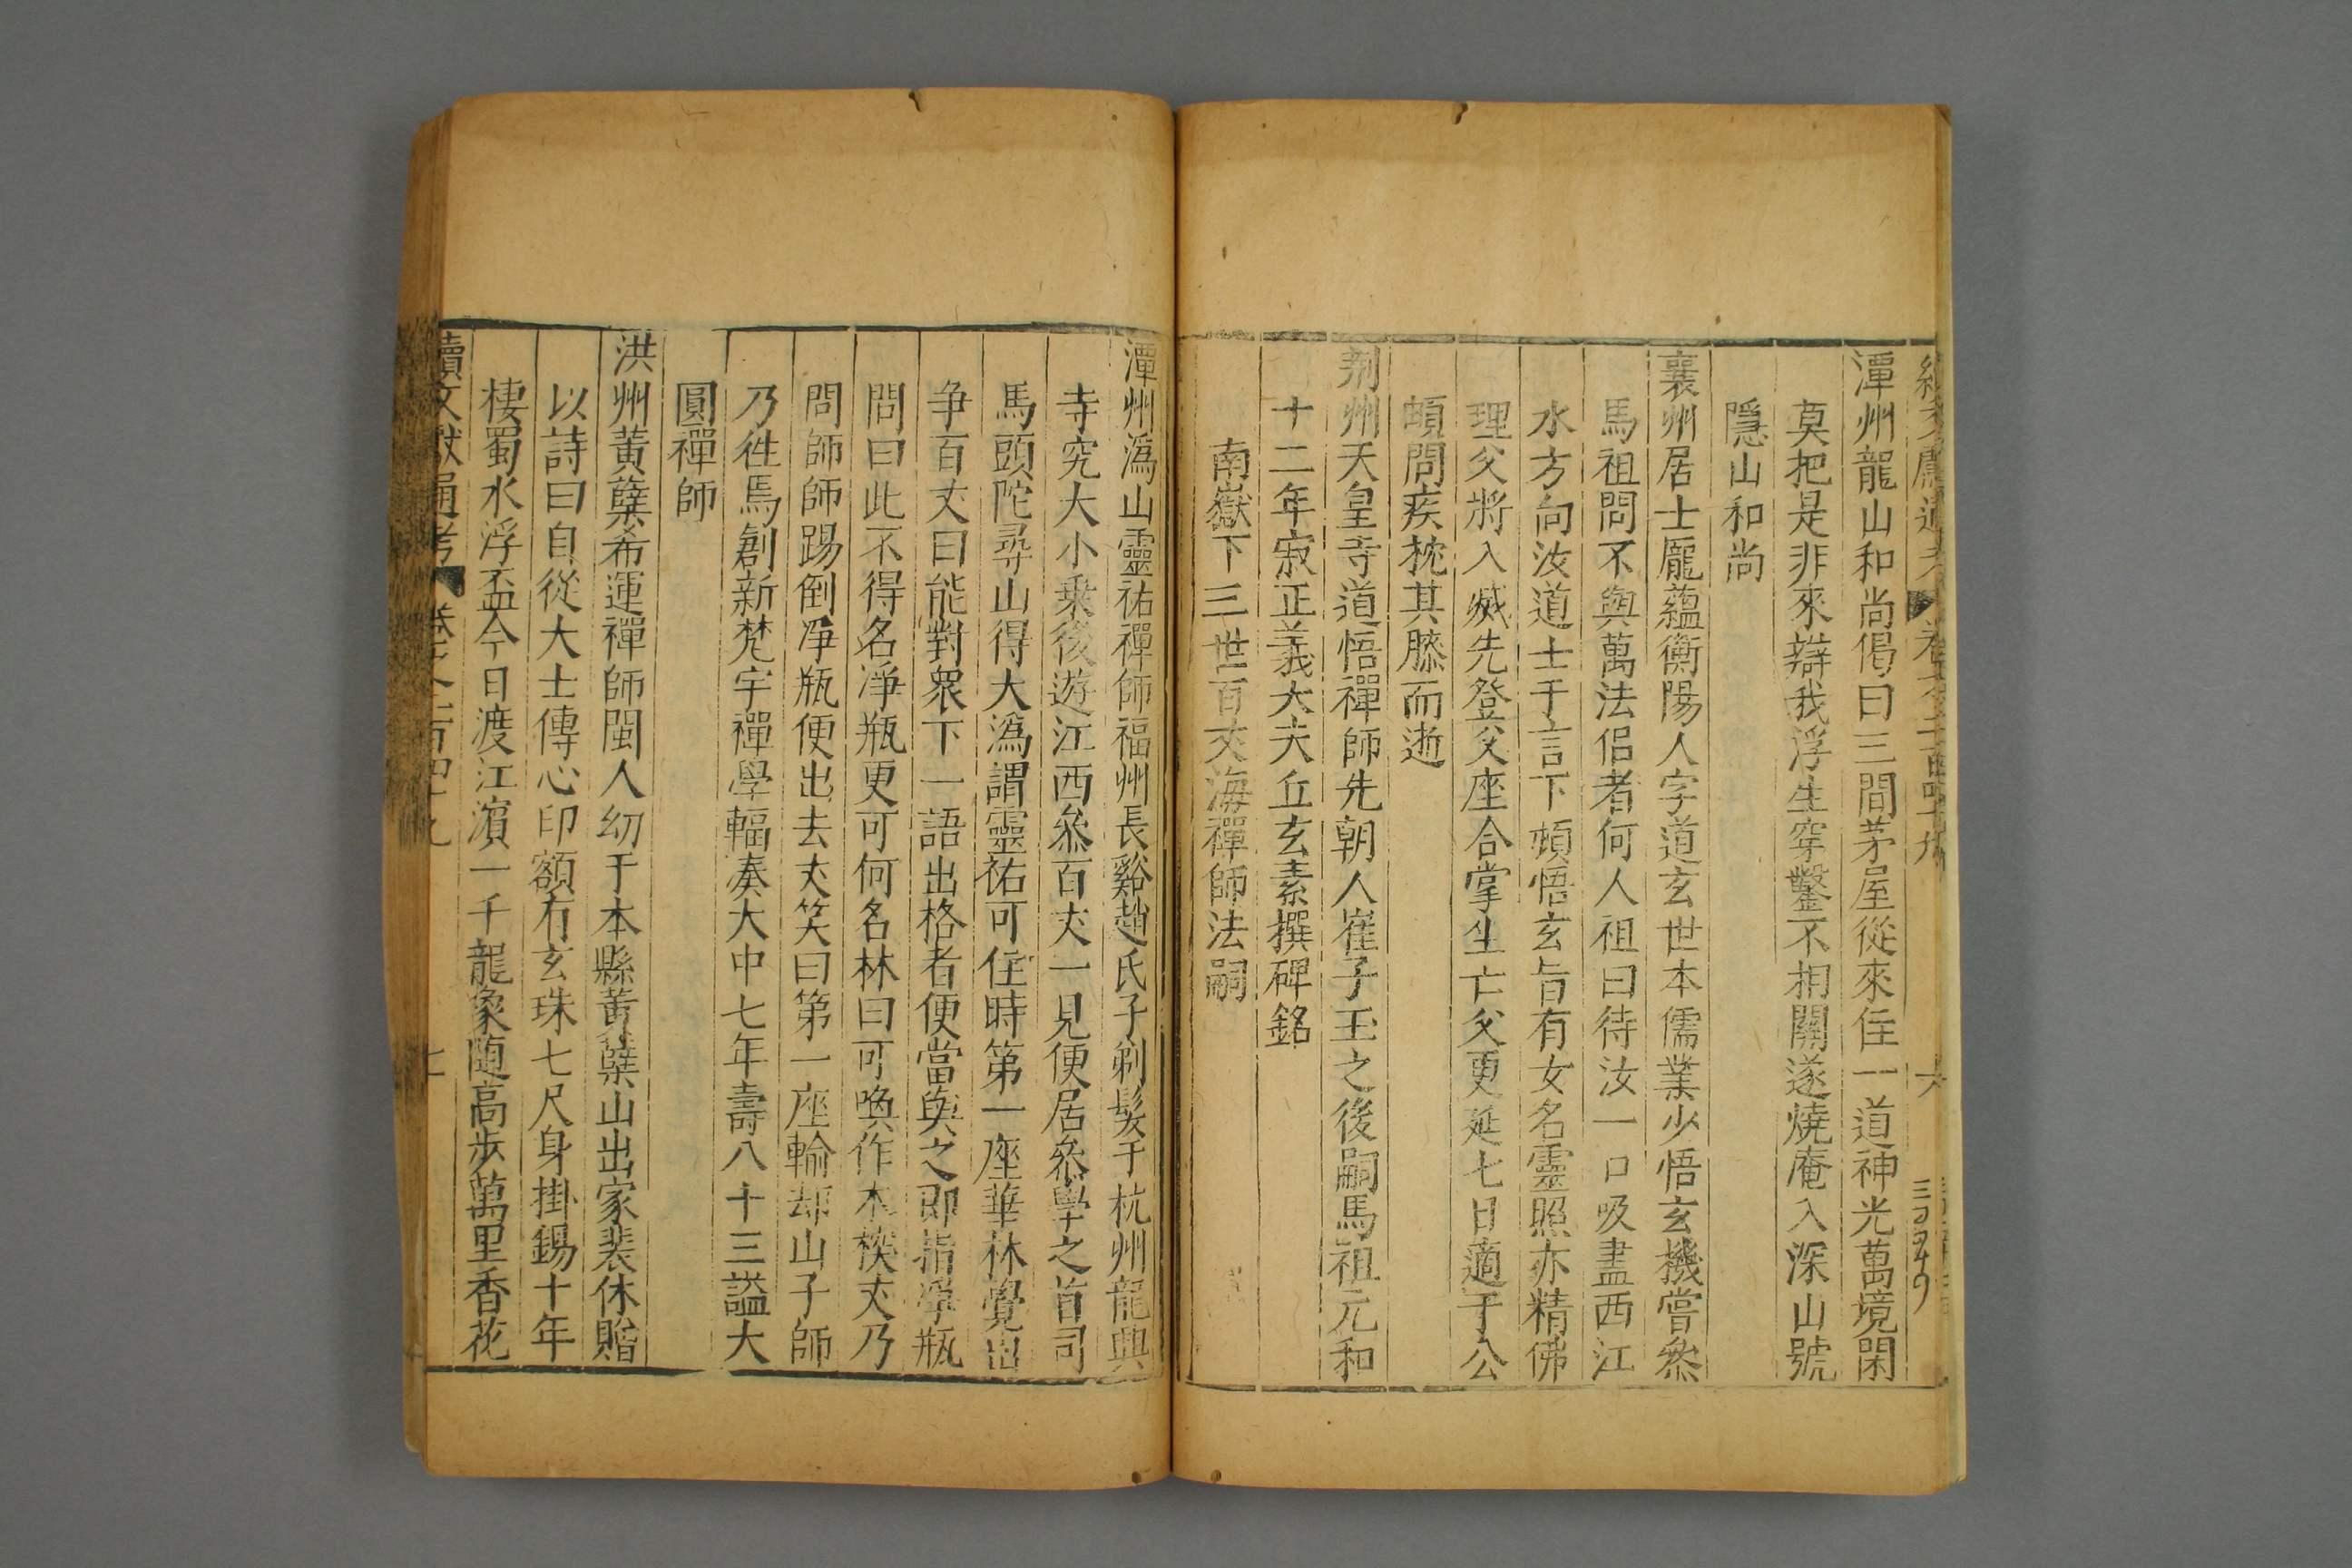 潭州龍山和尚偈曰三間茅屋從來住一道神光萬境閑
莫把是非來辯我浮生穿鑿不相關遂燒庵入深山號
隱山和尚
襄州居士龐蘊衡陽人字道玄世本儒業少悟玄機嘗叅
馬祖問不與萬法侣者何人祖曰待汝一口吸盡西江
水方向汝道士于言下頓悟玄旨有女名靈照亦精佛
理父將入滅先登父座合掌坐亡父更延七日適于公
頔問疾枕其膝而逝
荆州天皇寺道悟禪師先朝人崔子玉之後嗣馬祖元和
十二年寂正義大夫丘玄素撰碑銘
南嶽下三世百丈海禪師法嗣
潭州溈山靈祐禪師福州長谿趙氏子剃髮于杭州龍興
寺究大小乗後遊江西叅百丈一見便居叅學之首司
馬頭陀尋山得大溈謂靈祐可住時第一座華林覺出
争百丈曰能對衆下一語出格者便當與之即指淨瓶
問曰此不得名淨瓶更可何名林曰可喚作木㮇丈乃
問師師踢倒淨瓶便出去丈笑曰第一座輸却山子師
乃徃焉創新梵宇禪學輻湊大中七年壽八十三謚大
圓禪師
洪州黃蘗希運禪師閩人幼于本縣黃蘗山出家裴休贈
以詩曰自從大士傳心印額有玄珠七尺身掛錫十年
棲蜀水浮盃今日渡江濵一千龍象随高步萬里香花
續文獻通考 卷之二百四十九 七